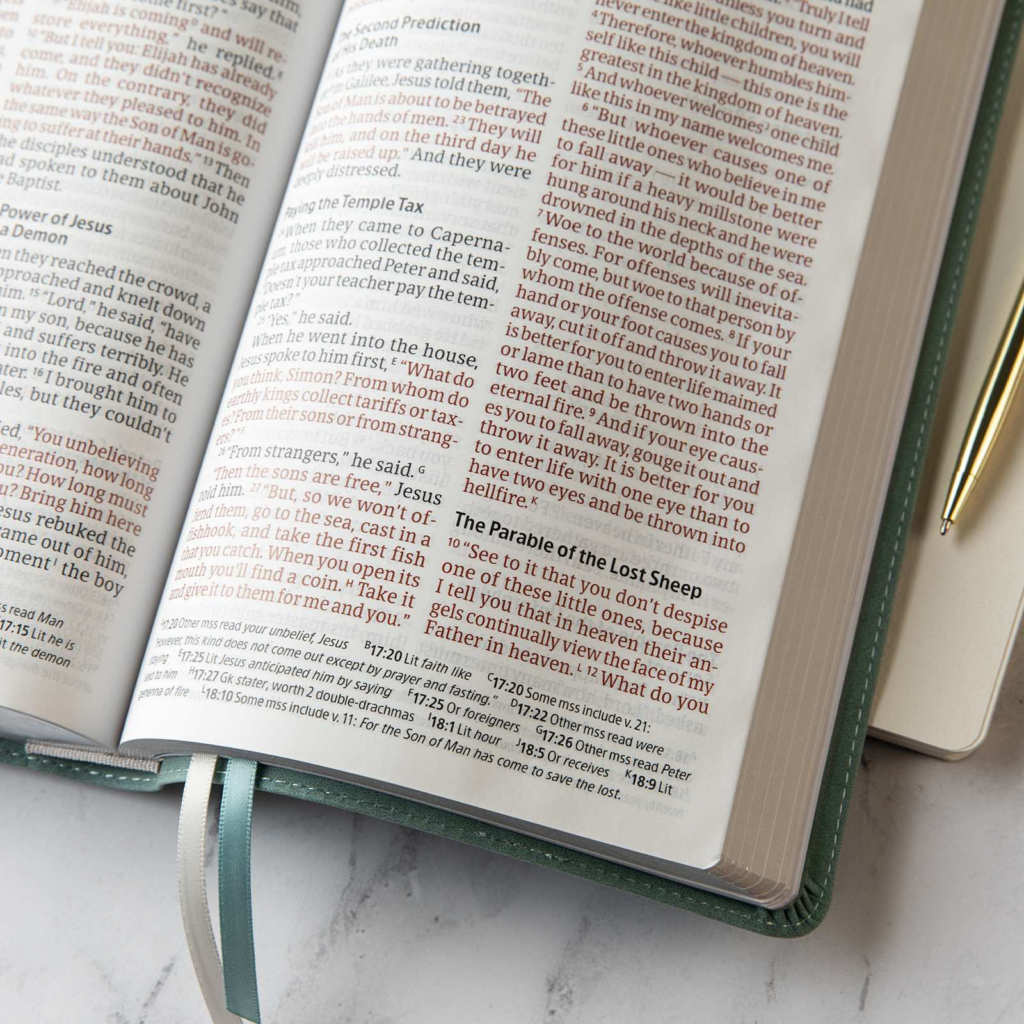 s say that
come first?"
"Elijah is coming and will re-
store everything," he replied.
"But I tell you: Elijah has already
come, and they didn't recognize
him. On the contrary, they did
whatever they pleased to him. In
the same way the Son of Man is go-
ing to suffer at their hands." 13 Then
he disciples understood that he
ad spoken to them about John
e Baptist.
Power of Jesus
a Demon
n they reached the crowd, a
pproached and knelt down
him. 15 "Lord," he said, "have
n my son, because he has
and suffers terribly. He
into the fire and often
ater. 16 I brought him to
les, but they couldn't
ed, "You unbelieving
eneration, how long
ou? How long must
u? Bring him here
esus rebuked the
ame out of him,
oment I the boy
ss read Man
17:15 Lit he is
it the demon
he Second Prediction
His Death
As they were gathering togeth-
in Galilee, Jesus told them, "The
Son of Man is about to be betrayed
into the hands of men. 23 They will
kill him, and on the third day he
will be raised up." And they were
deeply distressed.
Paying the Temple Tax
When they came to Caperna-
um, those who collected the tem-
ple tax approached Peter and said,
"Doesn't your teacher pay the tem-
ple tax?"
25 "Yes," he said.
When he went into the house,
Jesus spoke to him first, E "What do
you think, Simon? From whom do
earthly kings collect tariffs or tax-
es? From their sons or from strang-
ers?" F
26 "From strangers," he said. G
"Then the sons are free," Jesus
told him. 27 "But, so we won't of-
fend them, go to the sea, cast in a
fishhook, and take the first fish
that you catch. When you open its
mouth you'll find a coin. H Take it
and give it to them for me and you."
unless you turn and
like little children, you will
never enter the kingdom of heaven.
4 Therefore, whoever humbles him-
self like this child — this one is the
greatest in the kingdom of heaven.
5 And whoever welcomes J one child
like this in my name welcomes me.
6 "But whoever causes one of
these little ones who believe in me
to fall away — it would be better
for him if a heavy millstone were
hung around his neck and he were
drowned in the depths of the sea.
7 Woe to the world because of of-
fenses. For offenses will inevita-
bly come, but woe to that person by
whom the offense comes. 8 If your
hand or your foot causes you to fall
away, cut it off and throw it away. It
is better for you to enter life maimed
or lame than to have two hands or
two feet and be thrown into the
eternal fire. 9 And if your eye caus-
es you to fall away, gouge it out and
throw it away. It is better for you
to enter life with one eye than to
have two eyes and be thrown into
hellfire. K
The Parable of the Lost Sheep
10 "See to it that you don't despise
one of these little ones, because
I tell you that in heaven their an-
gels continually view the face of my
Father in heaven. L 12 What do you
A 17:20 Other mss read your unbelief, Jesus B 17:20 Lit faith like C 17:20 Some mss include v. 21:
"However, this kind does not come out except by prayer and fasting." D 17:22 Other mss read were
staying E 17:25 Lit Jesus anticipated him by saying F 17:25 Or foreigners G 17:26 Other mss read Peter
said to him H 17:27 Gk stater, worth 2 double-drachmas I 18:1 Lit hour J 18:5 Or receives K 18:9 Lit
gehenna of fire L 18:10 Some mss include v. 11: For the Son of Man has come to save the lost.